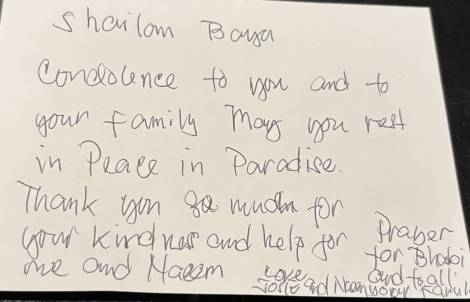 Shailom Baya
Condolence to you and to
your family May you rest
in Peace in Paradise.
Thank you so much for
your kindness and help for
me and Naeem
Prayer
for Bhabi
and to all
your family
Love
and Naeem